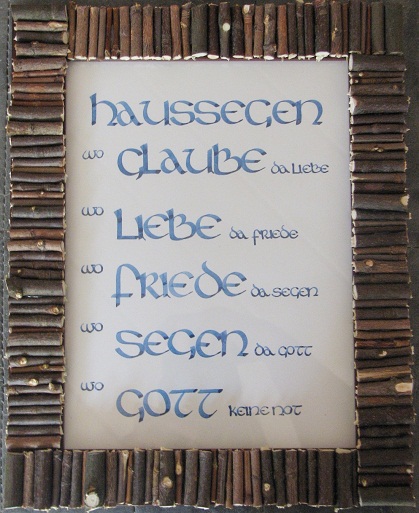 haussegen
wo Glaube da Liebe
wo Liebe da friede
wo friede da segen
wo segen da gott
wo Gott keine not